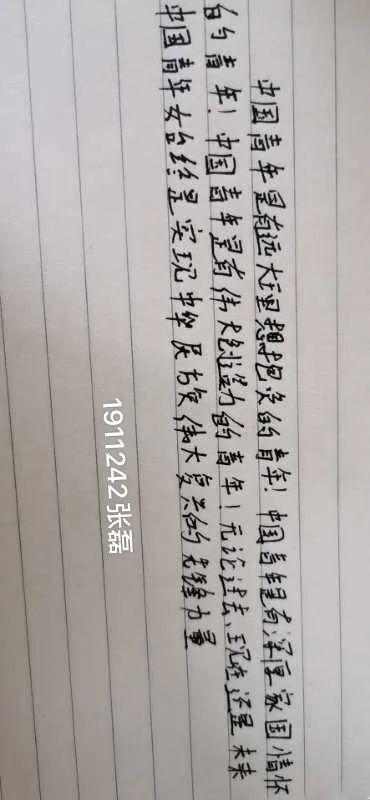 中国青年是有远大理想抱负的青年！中国青年是有深厚家国情怀
的青年！中国青年是有伟大创造力的青年！无论过去、现在还是未来
中国青年始终是实现中华民族伟大复兴的先锋力量
1911242张磊